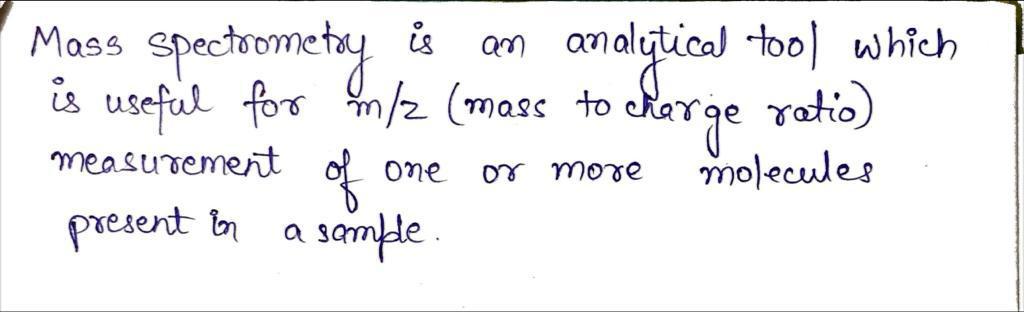 Mass spectrometry is an analytical tool which
is useful for m/z (mass to charge ratio)
measurement of one or more molecules
present in a sample.